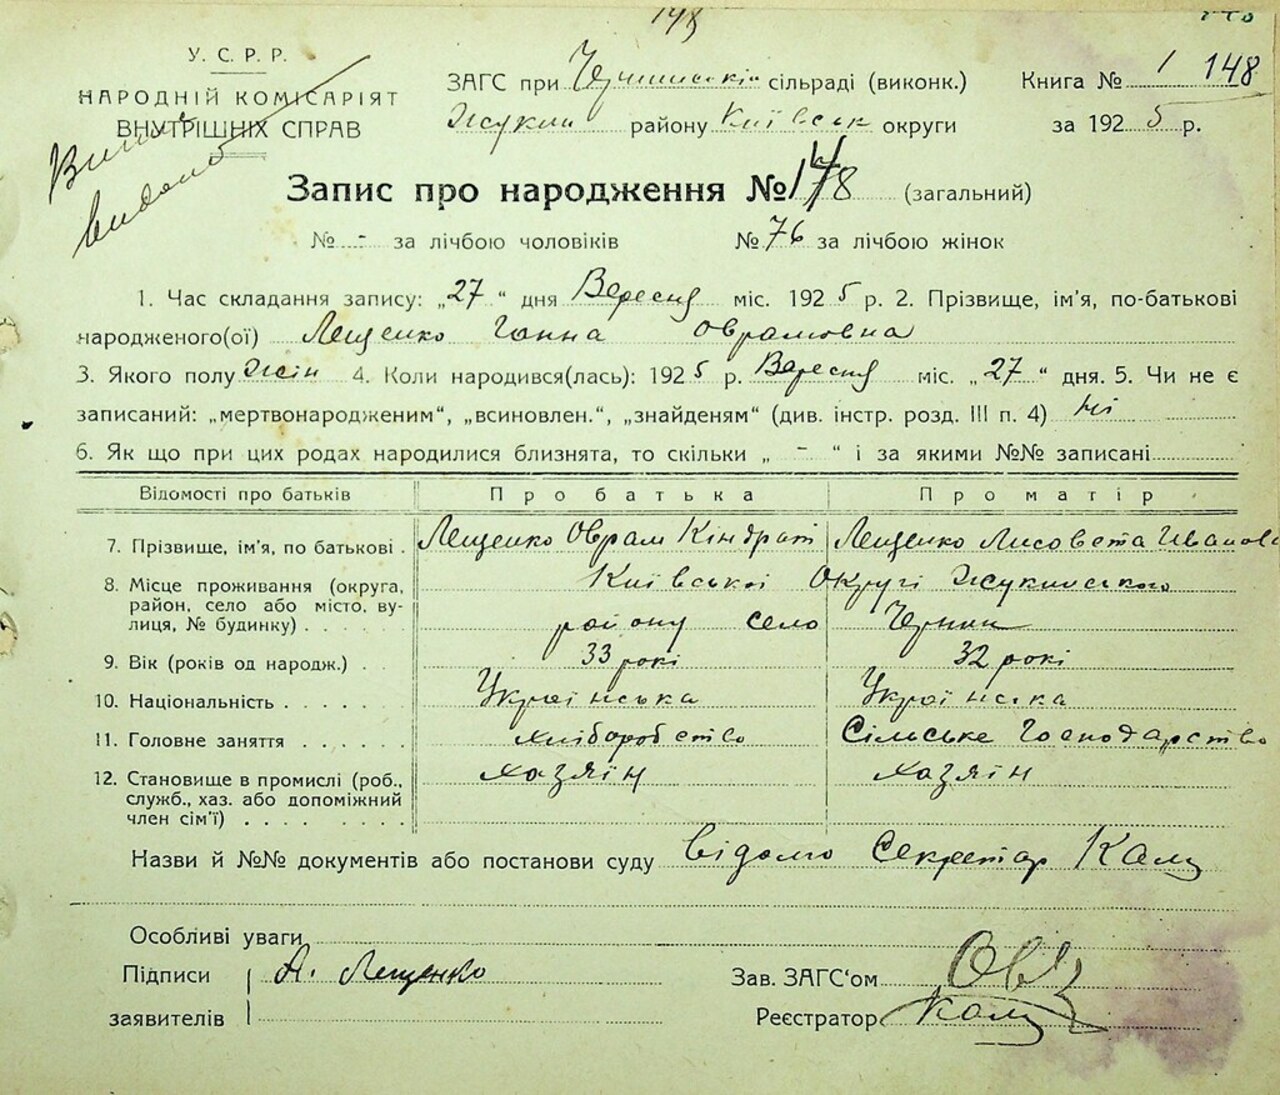 148
У. С. Р. Р.
НАРОДНІЙ КОМІСАРІЯТ
ВНУТРІШНІХ СПРАВ
ЗАГС при сільраді (виконк.)
Жукин району Київськ округи
Книга № 1 148
за 1925 р.
видано
Запис про народження № 148 (загальний)
№ - за лічбою чоловіків № 76 за лічбою жінок
1. Час складання запису: „27“ дня Вересня міс. 1925 р. 2. Прізвище, ім'я, по-батькові
народженого(ої) Лещенко Ганна Оврамовна
3. Якого полу жін 4. Коли народився(лась): 1925 р. Вересня міс. „27“ дня. 5. Чи не є
записаний: „мертвонародженим“, „всиновлен.“, „знайденям“ (див. інстр. розд. III п. 4) Ні
6. Як що при цих родах народилися близнята, то скільки „ - “ і за якими №№ записані
Відомості про батьків Про батька Про матір
7. Прізвище, ім'я, по батькові . Лещенко Оврам Кіндрат Лещенко Лисовета Иванов
8. Місце проживання (округа, район, село або місто, вулиця, № будинку) . . . . . Київської Округі Жукинського
району село Чернин
9. Вік (років од народж.) . . 33 рокі 32 рокі
10. Національність . . . . . . Українська Українська
11. Головне заняття . . . . . . хліборобство Сільське Господарство
12. Становище в промислі (роб., служб., хаз. або допоміжний член сім'ї) . . . . . . . . хазяїн хазяїн
Назви й №№ документів або постанови суду відомо Секретар
Особливі уваги
Підписи А. Лещенко
заявителів
Зав. ЗАГС‘ом
Реєстратор